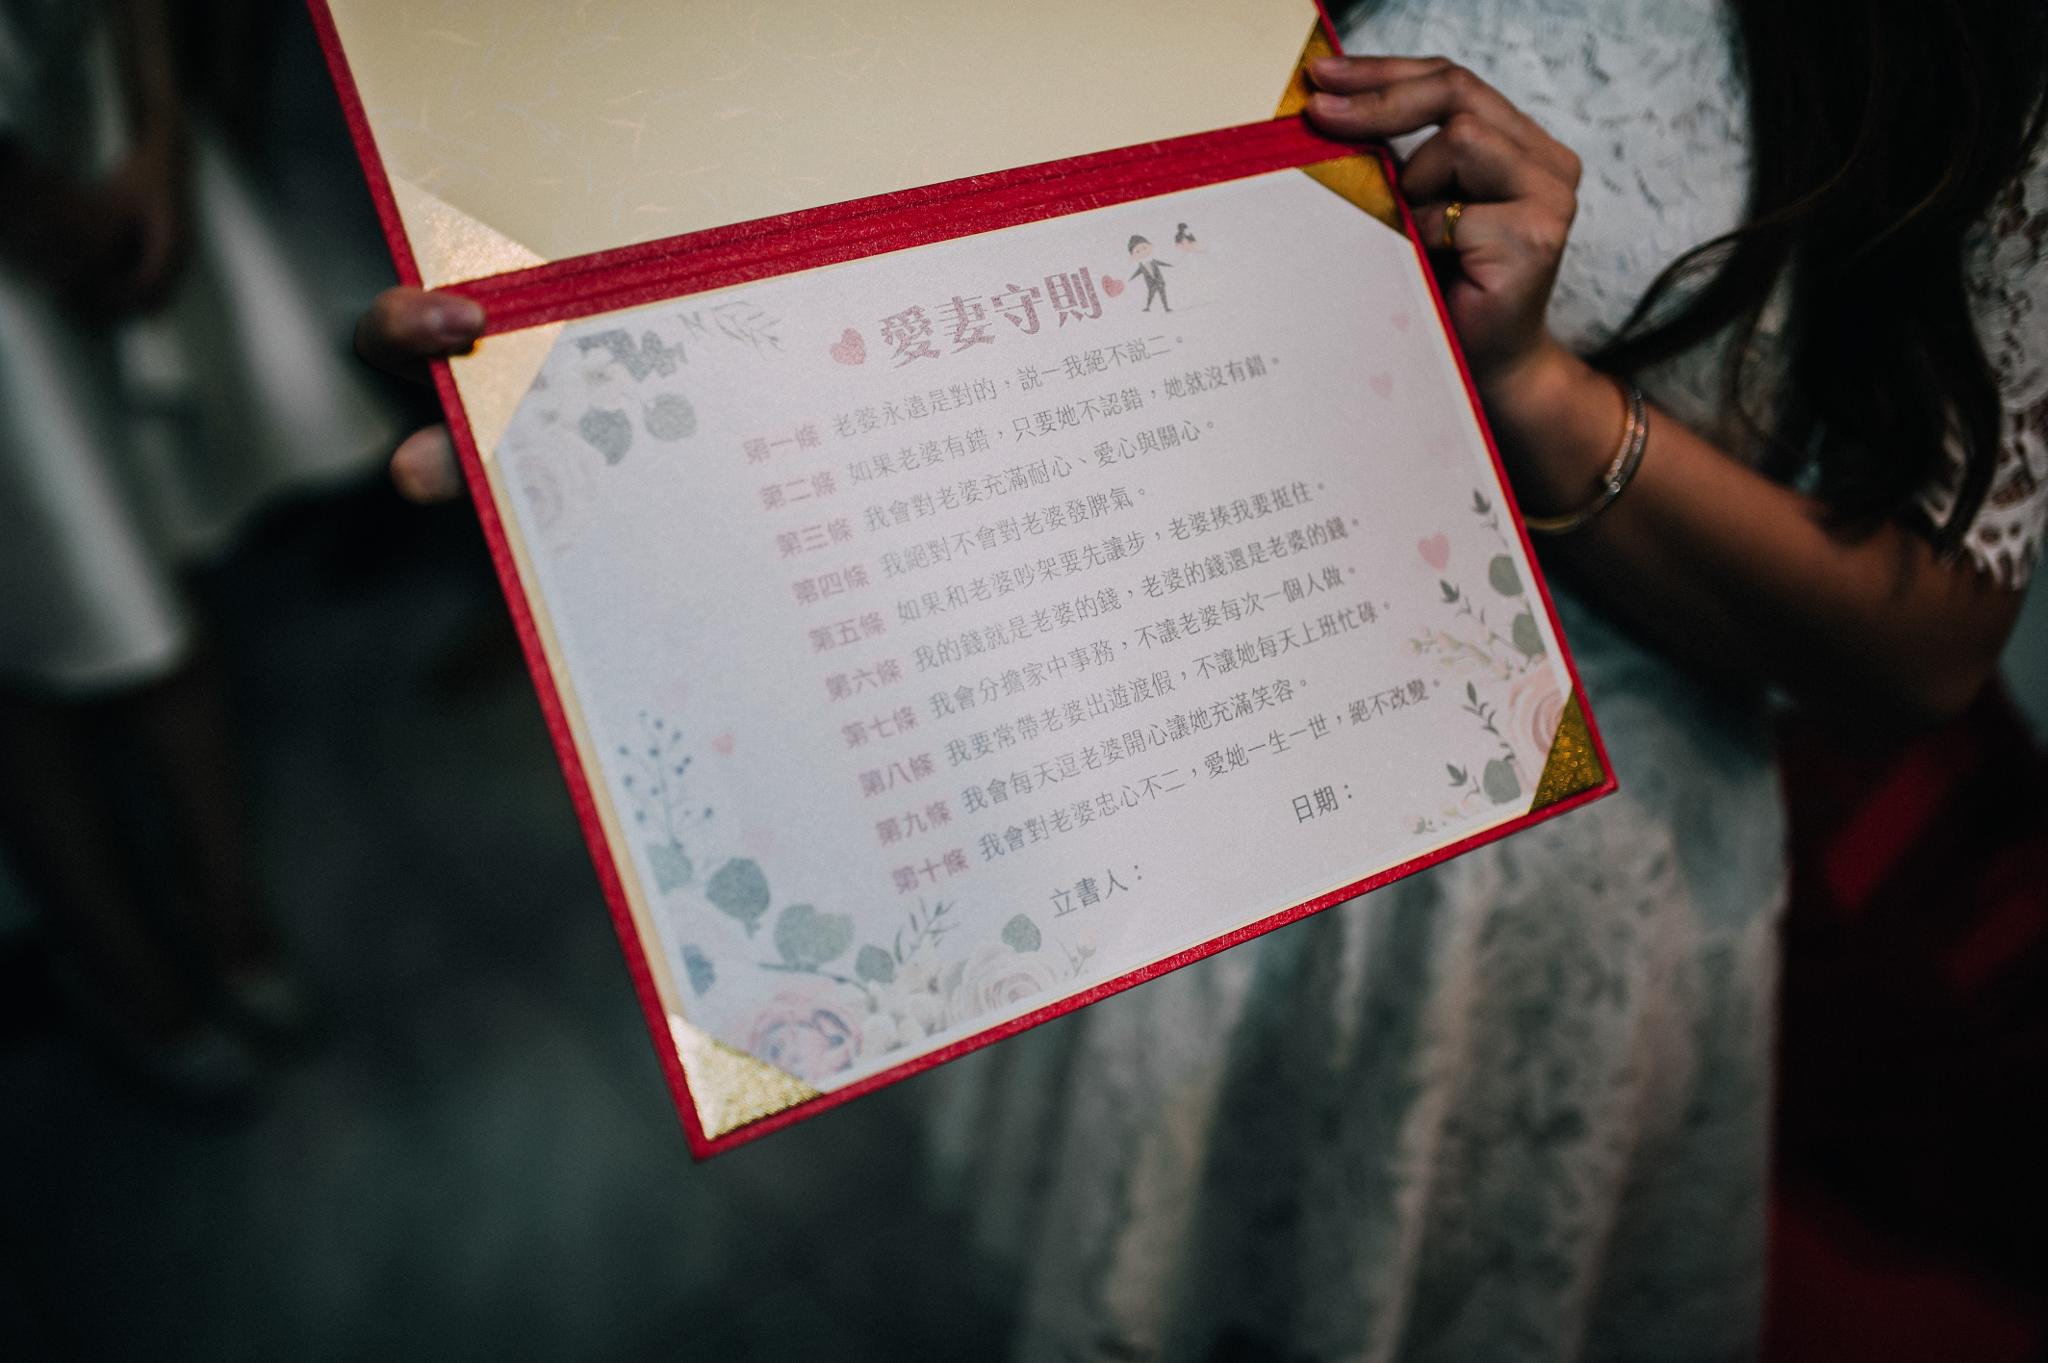 愛妻守則
第一條 老婆永遠是對的，說一我絕不說二。
第二條 如果老婆有錯，只要她不認錯，她就沒有錯。
第三條 我會對老婆充滿耐心、愛心與關心。
第四條 我絕對不會對老婆發脾氣。
第五條 如果和老婆吵架要先讓步，老婆揍我要挺住。
第六條 我的錢就是老婆的錢，老婆的錢還是老婆的錢。
第七條 我會分擔家中事務，不讓老婆每次一個人做。
第八條 我要常帶老婆出遊渡假，不讓她每天上班忙碌。
第九條 我會每天逗老婆開心讓她充滿笑容。
第十條 我會對老婆忠心不二，愛她一生一世，絕不改變。
立書人： 日期：